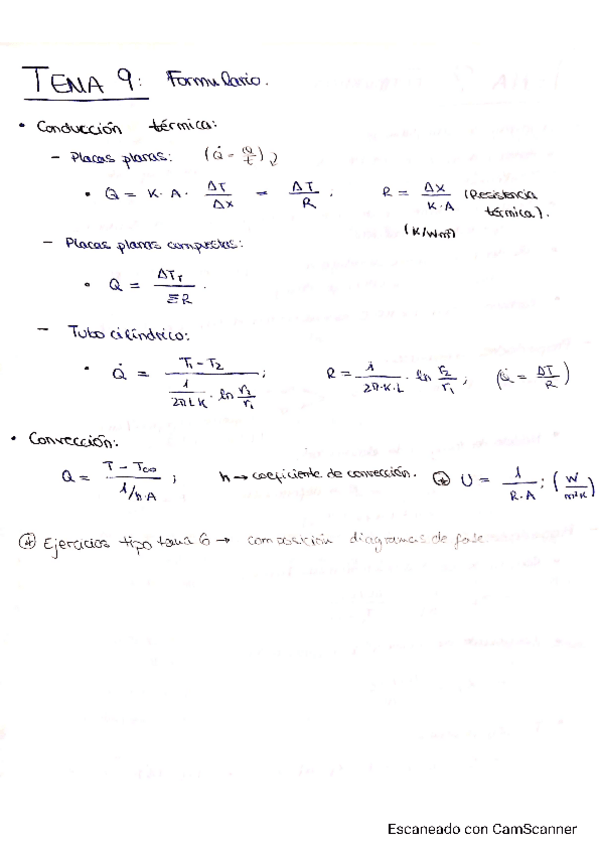 TEMA 9: Formulario.
• Conducción térmica:
– Placas planas: (Q̇ = Q/t)
• Q = K · A · ΔT/Δx = ΔT/R . R = Δx/(K·A) (Resistencia térmica).
(K/Wm²)
– Placas planas compuestas:
• Q = ΔT_T/ΣR .
– Tubo cilíndrico:
• Q̇ = (T₁ - T₂)/(1/(2πLK) · ln r₂/r₁) ; R = 1/(2π·K·L) · ln r₂/r₁ ; (Q̇ = ΔT/R)
• Convección:
Q = (T - T∞)/(1/h·A) ; h → coeficiente de convección. ⊛ U = 1/(R·A) ; (W/m²K)
⊛ Ejercicios tipo tema 6 → composición diagramas de fase
Escaneado con CamScanner